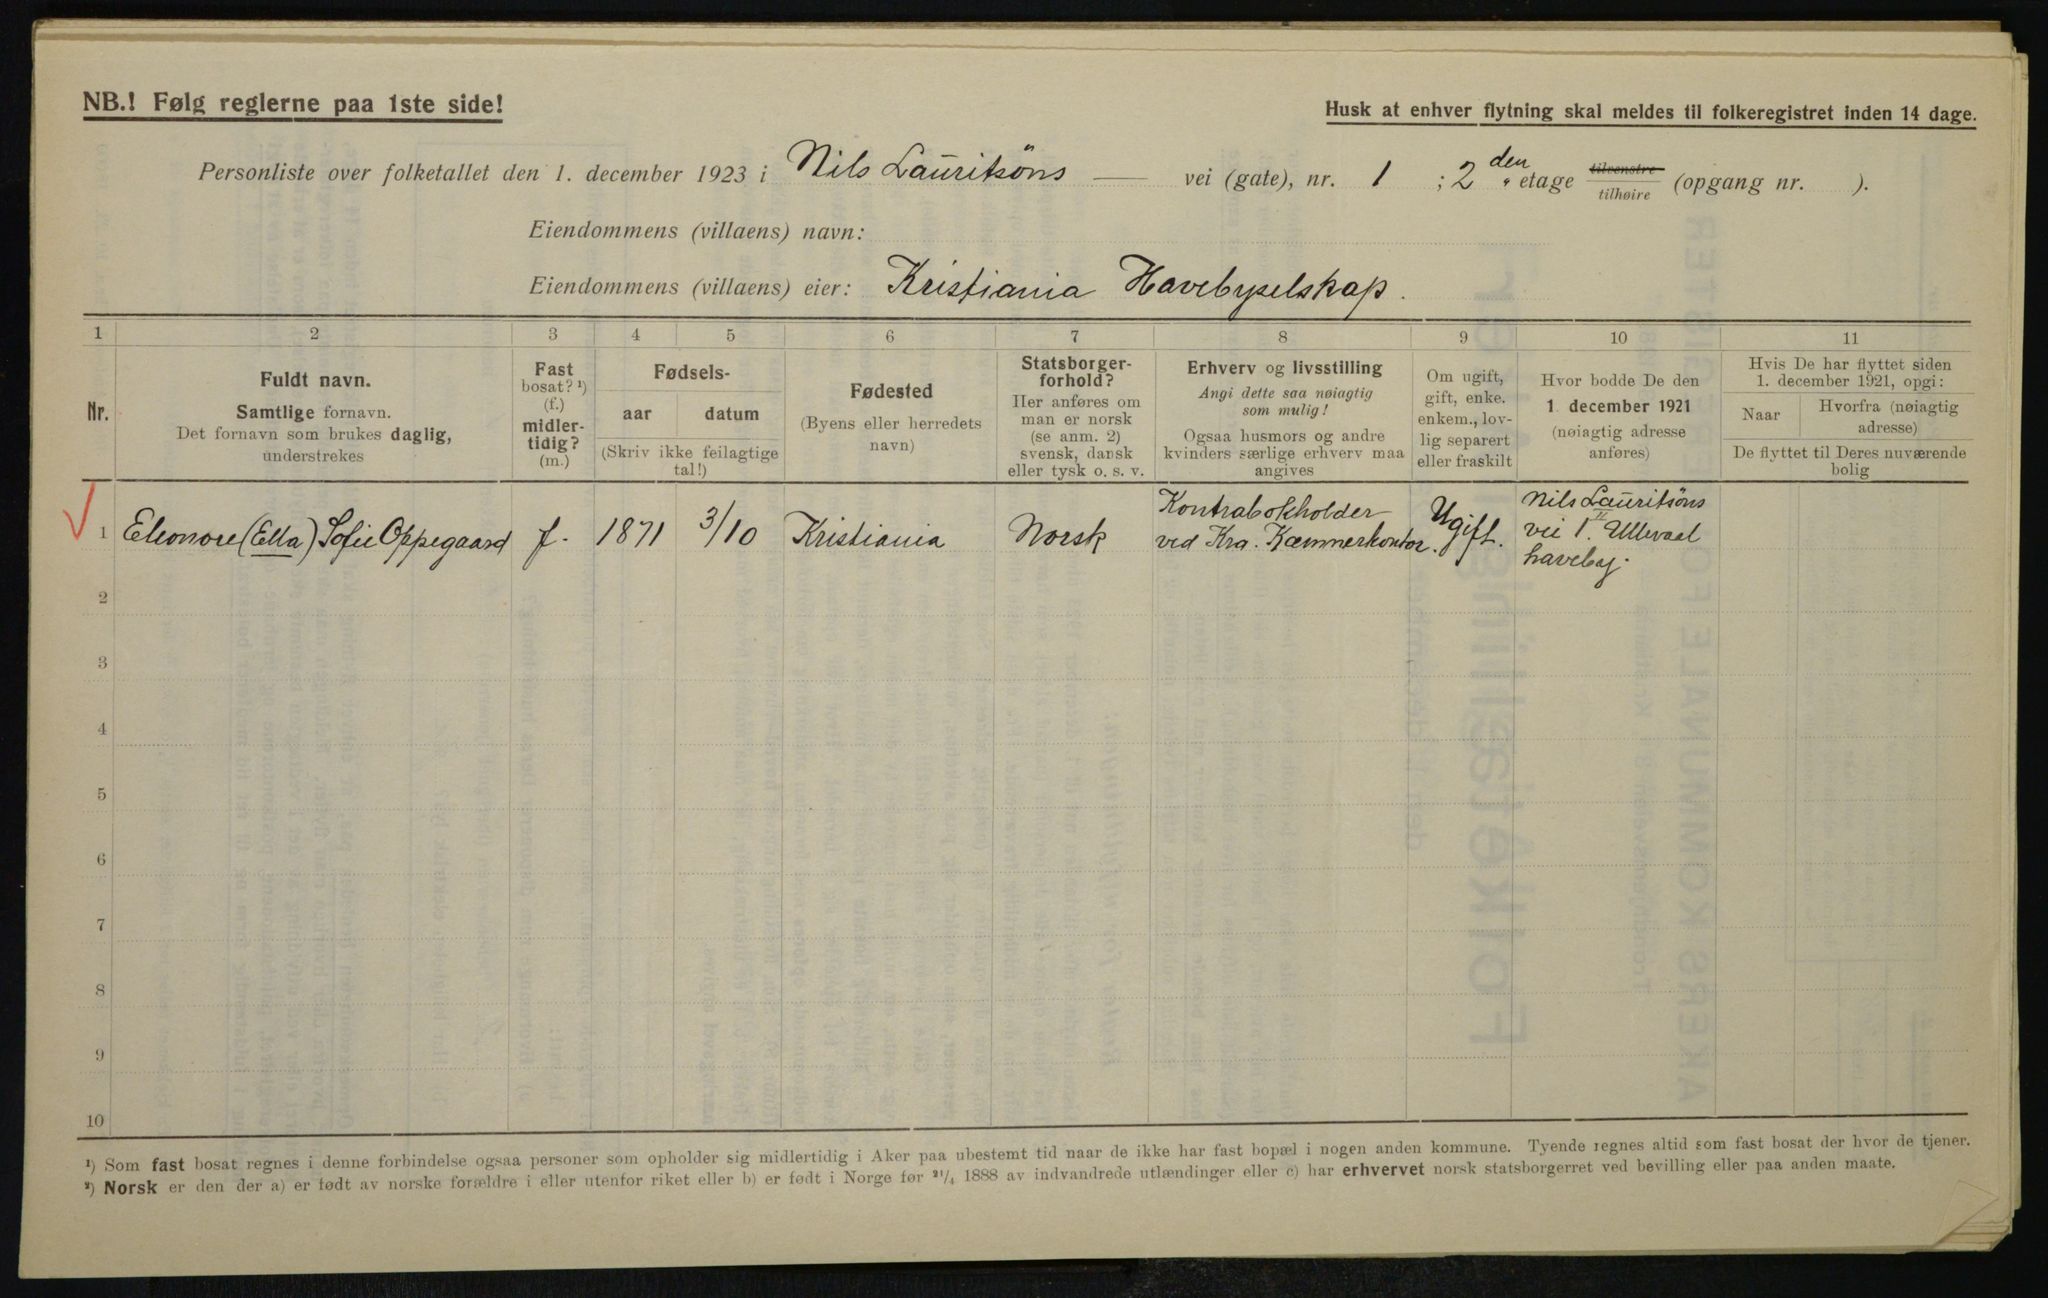 NB.! Følg reglerne paa 1ste side!
Husk at enhver flytning skal meldes til folkeregistret inden 14 dage.
Personliste over folketallet den 1. december 1923 i Nils Lauritsöns — vei (gate), nr. 1 ; 2 den etage tilvenstre/tilhøire (opgang nr. ).
Eiendommens (villaens) navn:
Eiendommens (villaens) eier: Kristiania Havebyselskap.
1 2 3 4 5 6 7 8 9 10 11
Nr.
Fuldt navn.
Samtlige fornavn.
Det fornavn som brukes daglig,
understrekes
Fast
bosat? ¹)
(f.)
midler-
tidig?
(m.)
Fødsels-
aar datum
(Skriv ikke feilagtige
tal!)
Fødested
(Byens eller herredets
navn)
Statsborger-
forhold?
Her anføres om
man er norsk
(se anm. 2)
svensk, dansk
eller tysk o. s. v.
Erhverv og livsstilling
Angi dette saa nøiagtig
som mulig!
Ogsaa husmors og andre
kvinders særlige erhverv maa
angives
Om ugift,
gift, enke.
enkem., lov-
lig separert
eller fraskilt
Hvor bodde De den
1 december 1921
(nøiagtig adresse
anføres)
Hvis De har flyttet siden
1. december 1921, opgi:
Naar
Hvorfra (nøiagtig
adresse)
De flyttet til Deres nuværende
bolig
1 Eleonore (Ella) Sofie Oppegaard f. 1871 3/10 Kristiania Norsk
Kontrabokholder
ved Kra. Kæmnerkontor.
Ugift.
Nils Lauritsöns
vei 1 II. Ullevaal
haveby.
2
3
4
5
6
7
8
9
10
¹) Som fast bosat regnes i denne forbindelse ogsaa personer som opholder sig midlertidig i Aker paa ubestemt tid naar de ikke har fast bopæl i nogen anden kommune. Tyende regnes altid som fast bosat der hvor de tjener.
²) Norsk er den der a) er født av norske forældre i eller utenfor riket eller b) er født i Norge før ²¹/₄ 1888 av indvandrede utlændinger eller c) har erhvervet norsk statsborgerret ved bevilling eller paa anden maate.